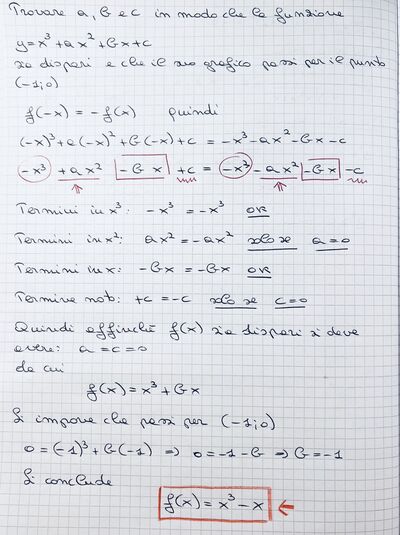 Trovare a, b e c in modo che la funzione
y=x³+ax²+bx+c
sia dispari e che il suo grafico passi per il punto
(-1;0)
f(-x) = -f(x) quindi
(-x)³+a(-x)²+b(-x)+c = -x³-ax²-bx-c
-x³ +ax² -bx +c = -x³ -ax² -bx -c
Termini in x³: -x³ = -x³ OK
Termini in x²: ax² = -ax² solo se a=0
Termini in x: -bx = -bx OK
Termine noto: +c = -c solo se c=0
Quindi affinché f(x) sia dispari si deve
avere: a=c=0
da cui
f(x) = x³+bx
Si impone che passi per (-1;0)
0=(-1)³+b(-1) ⇒ 0=-1-b ⇒ b=-1
Si conclude
f(x) = x³-x ←